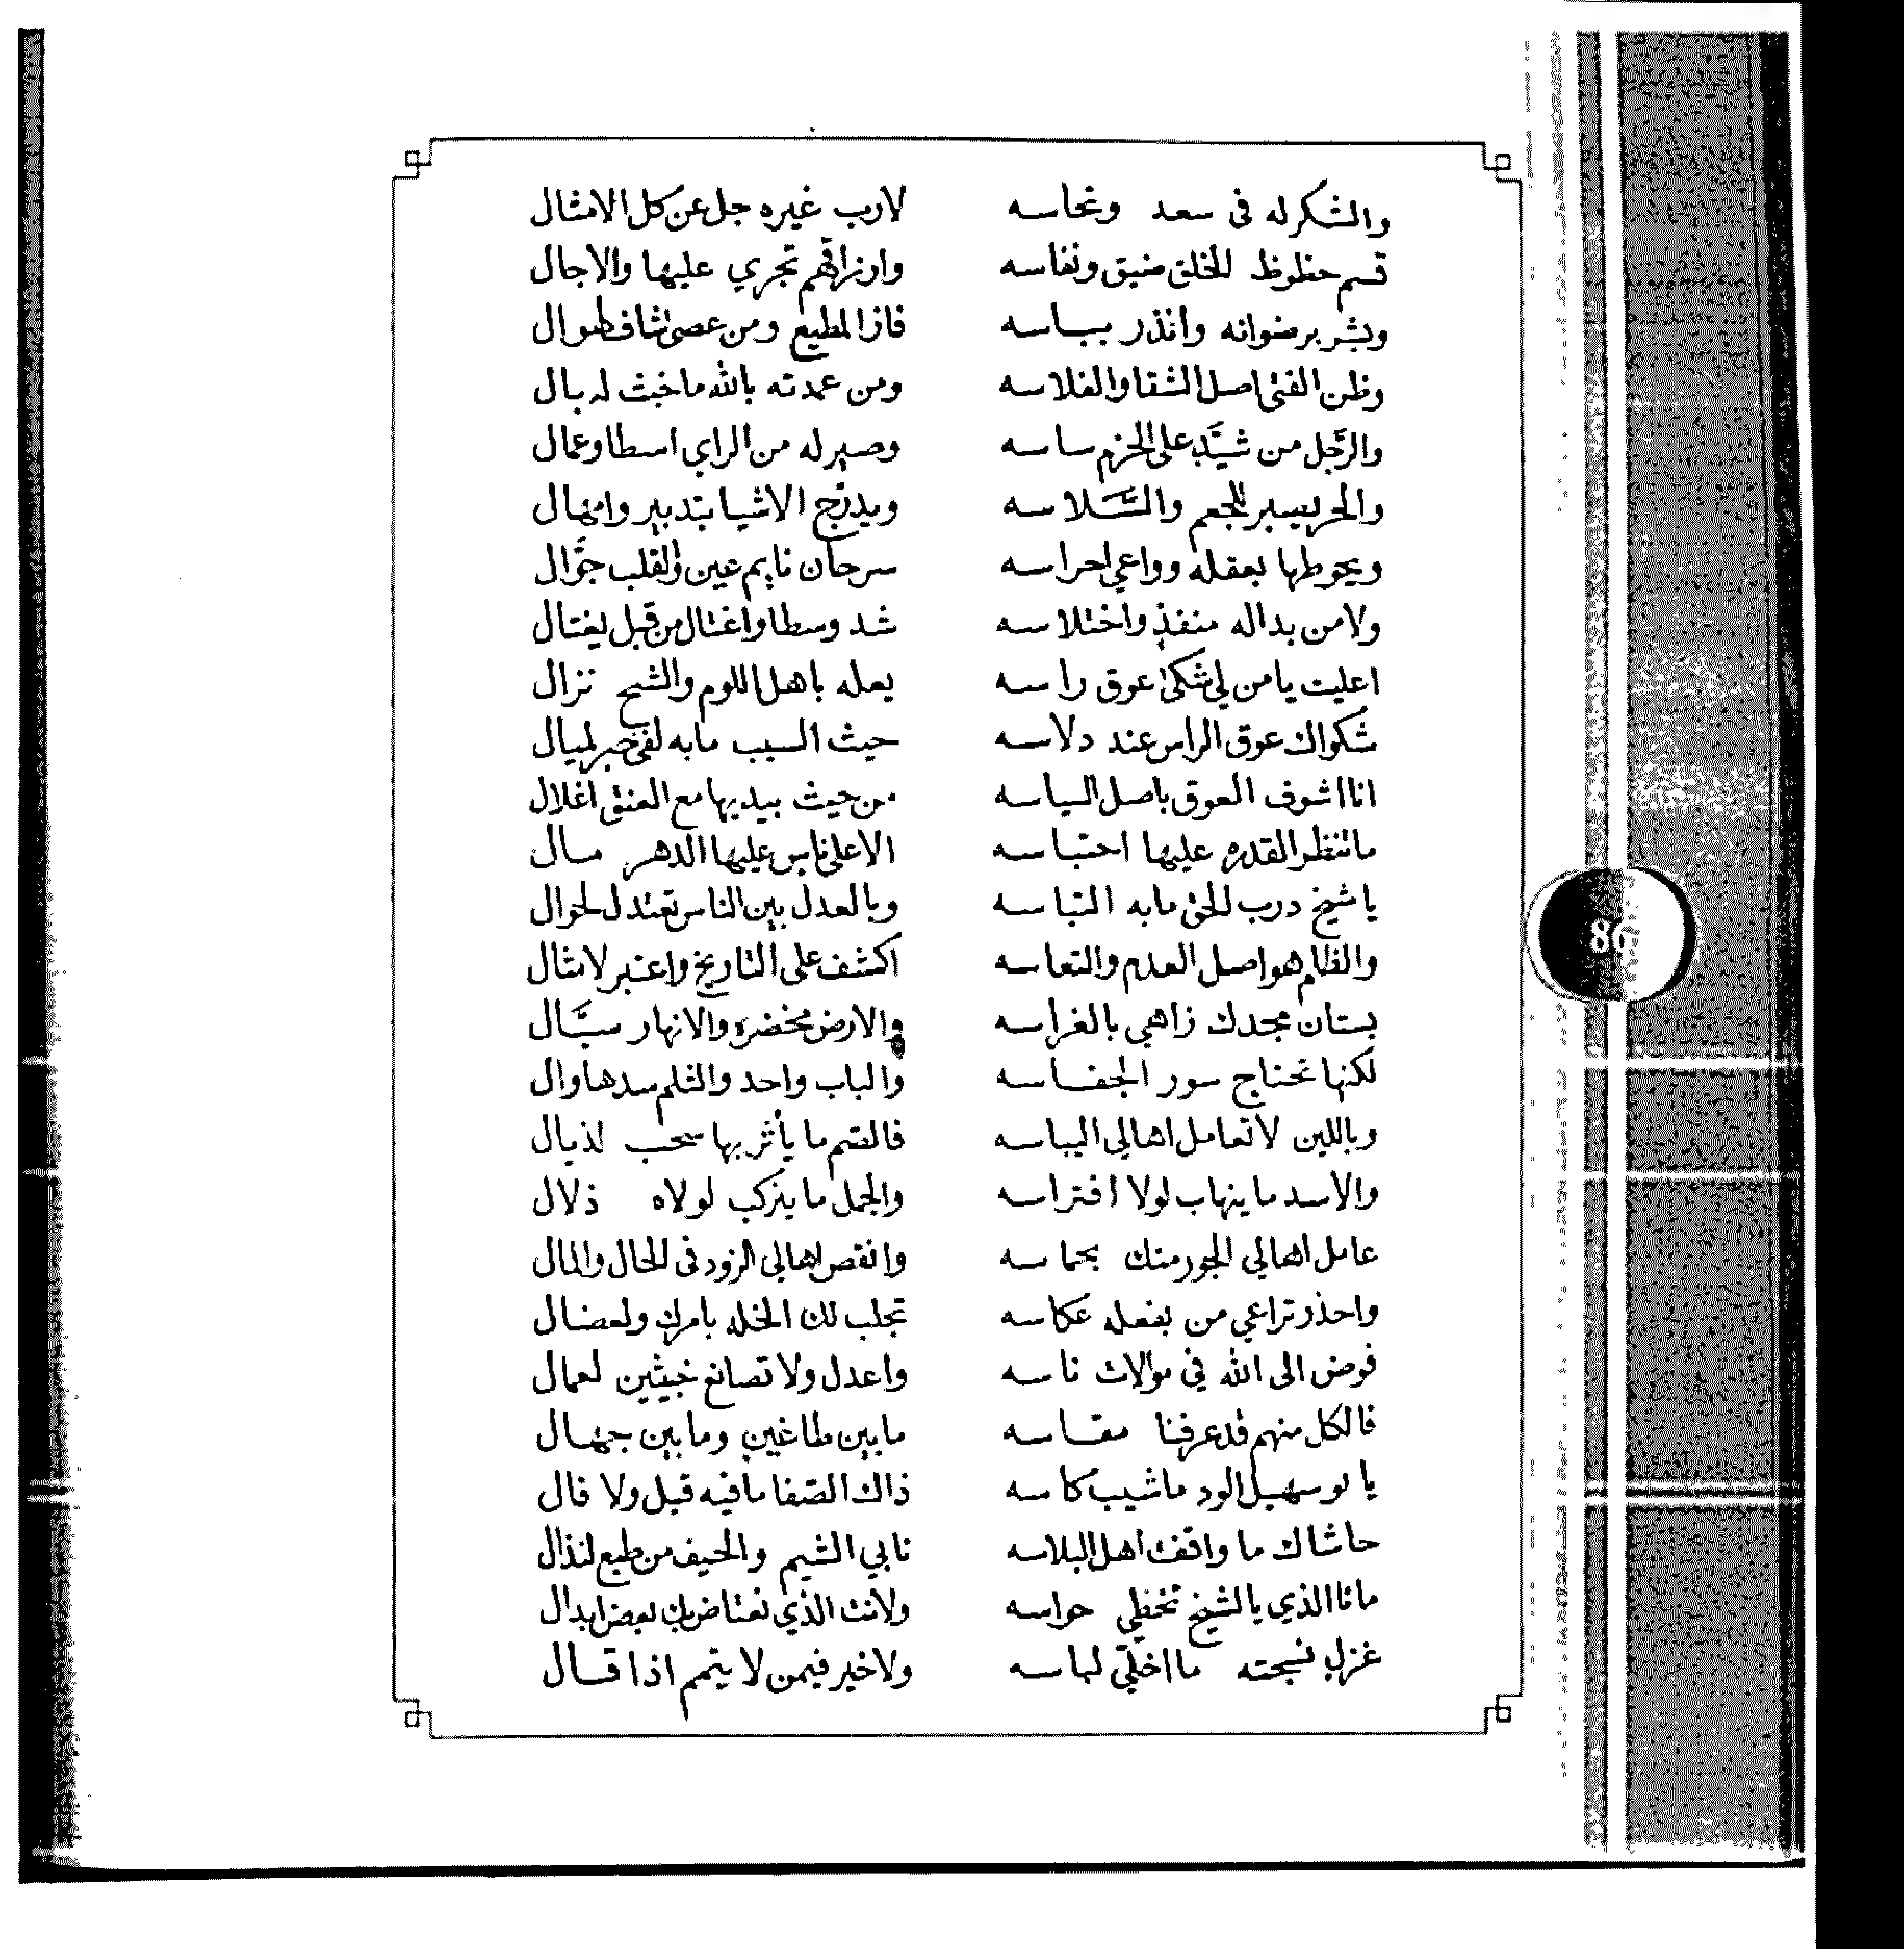 والشكر له في سعد ونحاسه لارب غيره جل عن كل الامثال
قسم حظوظ الخلق ضيق ونفاسه وارزاقهم تجري عليها والاجال
وبشر برضوانه وانذر بباسه فاز المطيع ومن عصى شاف لهوال
وظن الفتى اصل الشقا والفلاسه ومن عمدته بالله ما خبث له بال
والرجل من شيد على الحزم ساسه وصير له من الراي اسطا وعمال
والحر يسبر للجعم والسلاسه ويدرج الاشيا بتدبير وامهال
ويحوطها بعقله وواعي احراسه سرحان نايم عين والقلب جوال
ولا من بداله منفذ واختلاسه شد وسطا واغتال من قبل يغتال
اعليت يا من لي شكى عوق راسه يعله باهل اللوم والشح نزال
شكواك عوق الراس عند دلاسه حيث السبب مابه لفى خبر لميال
انا اشوف العوق باصل السياسه من حيث بيديها مع العنق اغلال
ماتنظر القدره عليها احتباسه الا على ناس عليها الدهر مال
يا شيخ درب الحق مابه التباسه وبالعدل بين الناس تعتدل لحوال
والظلم هو اصل العدم والتعاسه اكشف على التاريخ واعتبر لامثال
بستان مجدك زاهي بالغراسه والارض مخضره والانهار سيال
لكنها تحتاج سور الجفاسه والباب واحد والثلم سدها وال
وباللين لاتعامل اهالي اليباسه فالصم ما يأثر بها سحب لذيال
والاسد ما ينهاب لولا افتراسه والجمل ما ينركب لولاه ذلال
عامل اهالي الجور منك بحماسه وانقص اهالي الزود في الحال والمال
واحذر تراعي من بفعله عكاسه تجلب لك الخله بامرك ولعضال
فوض الى الله في موالات ناسه واعدل ولا تصانع خبيثين لعمال
فالكل منهم قد عرفنا مقاسه مابين طاغين ومابين جهال
يا لو سهيل الود ماشيب كاسه ذاك الصفا مافيه قيل ولا قال
حاشاك ما واقفت اهل البلاسه نابي الشيم والحيف من طبع لنذال
مانا الذي يالشيخ تخطي حواسه ولانت الذي نعتاض بك بعض ابدال
غزل نسجته ما اخلي لباسه ولا خير فيمن لا يتمم اذا قال
86